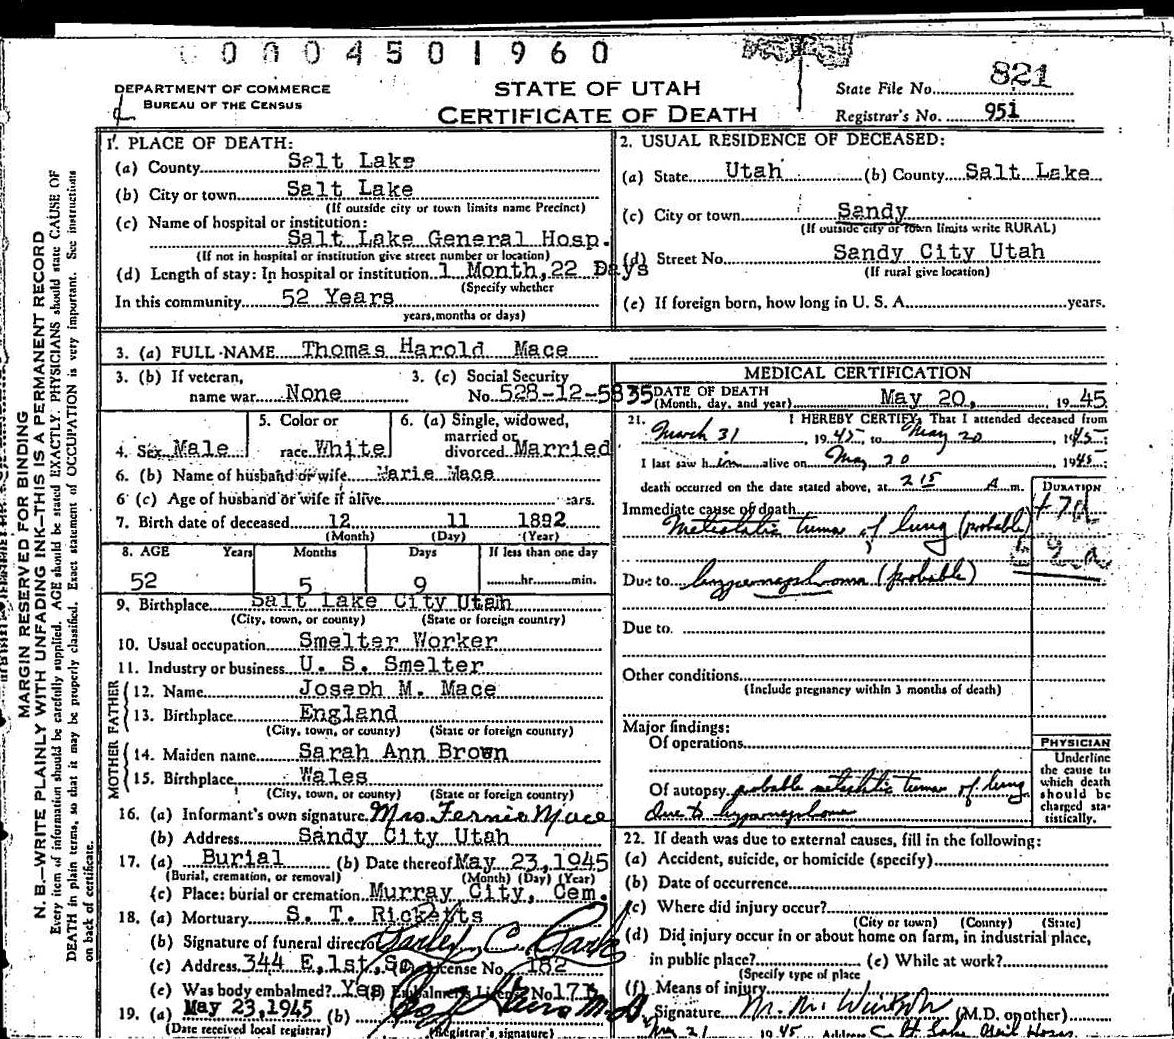 0004501960
DEPARTMENT OF COMMERCE
BUREAU OF THE CENSUS
STATE OF UTAH
CERTIFICATE OF DEATH
State File No. 821
Registrar's No. 951
MARGIN RESERVED FOR BINDING
N. B.—WRITE PLAINLY WITH UNFADING INK—THIS IS A PERMANENT RECORD
Every item of information should be carefully supplied. AGE should be stated EXACTLY. PHYSICIANS should state CAUSE OF
DEATH in plain terms, so that it may be properly classified. Exact statement of OCCUPATION is very important. See instructions
on back of certificate.
1. PLACE OF DEATH:
(a) County Salt Lake
(b) City or town Salt Lake
(If outside city or town limits name Precinct)
(c) Name of hospital or institution:
Salt Lake General Hosp.
(If not in hospital or institution give street number or location)
(d) Length of stay: In hospital or institution 1 Month, 22 Days
(Specify whether
In this community 52 Years
years, months or days)
2. USUAL RESIDENCE OF DECEASED:
(a) State Utah (b) County Salt Lake
(c) City or town Sandy
(If outside city or town limits write RURAL)
(d) Street No. Sandy City Utah
(If rural give location)
(e) If foreign born, how long in U. S. A. years.
3. (a) FULL NAME Thomas Harold Mace
3. (b) If veteran,
name war None
3. (c) Social Security
No. 528-12-5835
4. Sex Male
5. Color or
race White
6. (a) Single, widowed,
married or
divorced Married
6. (b) Name of husband or wife Marie Mace
6 (c) Age of husband or wife if alive ears.
7. Birth date of deceased 12 11 1892
(Month) (Day) (Year)
8. AGE Years Months Days If less than one day
52 5 9 hr. min.
9. Birthplace Salt Lake City Utah
(City, town, or county) (State or foreign country)
10. Usual occupation Smelter Worker
11. Industry or business U. S. Smelter
FATHER
12. Name Joseph M. Mace
13. Birthplace England
(City, town, or county) (State or foreign country)
MOTHER
14. Maiden name Sarah Ann Brown
15. Birthplace Wales
(City, town, or county) (State or foreign country)
16. (a) Informant's own signature Mrs. Fernie Mace
(b) Address Sandy City Utah
17. (a) Burial (b) Date thereof May 23, 1945
(Burial, cremation, or removal) (Month) (Day) (Year)
(c) Place: burial or cremation Murray City, Cem.
18. (a) Mortuary S. T. Ricketts
(b) Signature of funeral director
(c) Address 344 E, 1st, So. License No. 182
(e) Was body embalmed? Yes (f) Embalmer's License No. 171
19. (a) May 23, 1945 (b)
(Date received local registrar) (Registrar's signature)
MEDICAL CERTIFICATION
DATE OF DEATH
(Month, day, and year) May 20, 1945
21. I HEREBY CERTIFY, That I attended deceased from
March 31 1945 to May 20 1945
I last saw him alive on May 20 1945
death occurred on the date stated above, at 2 15 A m.
DURATION
Immediate cause of death
Metastatic tumor of lung (probable)
Due to hypernephroma (probable)
Due to
Other conditions
(Include pregnancy within 3 months of death)
Major findings:
Of operations
Of autopsy probable metastatic tumor of lung
due to hypernephroma
PHYSICIAN
Underline
the cause to
which death
should be
charged sta-
tistically.
22. If death was due to external causes, fill in the following:
(a) Accident, suicide, or homicide (specify)
(b) Date of occurrence
(c) Where did injury occur?
(City or town) (County) (State)
(d) Did injury occur in or about home on farm, in industrial place,
in public place? (e) While at work?
(Specify type of place
(f) Means of injury
Signature (M.D. or other)
May 21 1945 Address